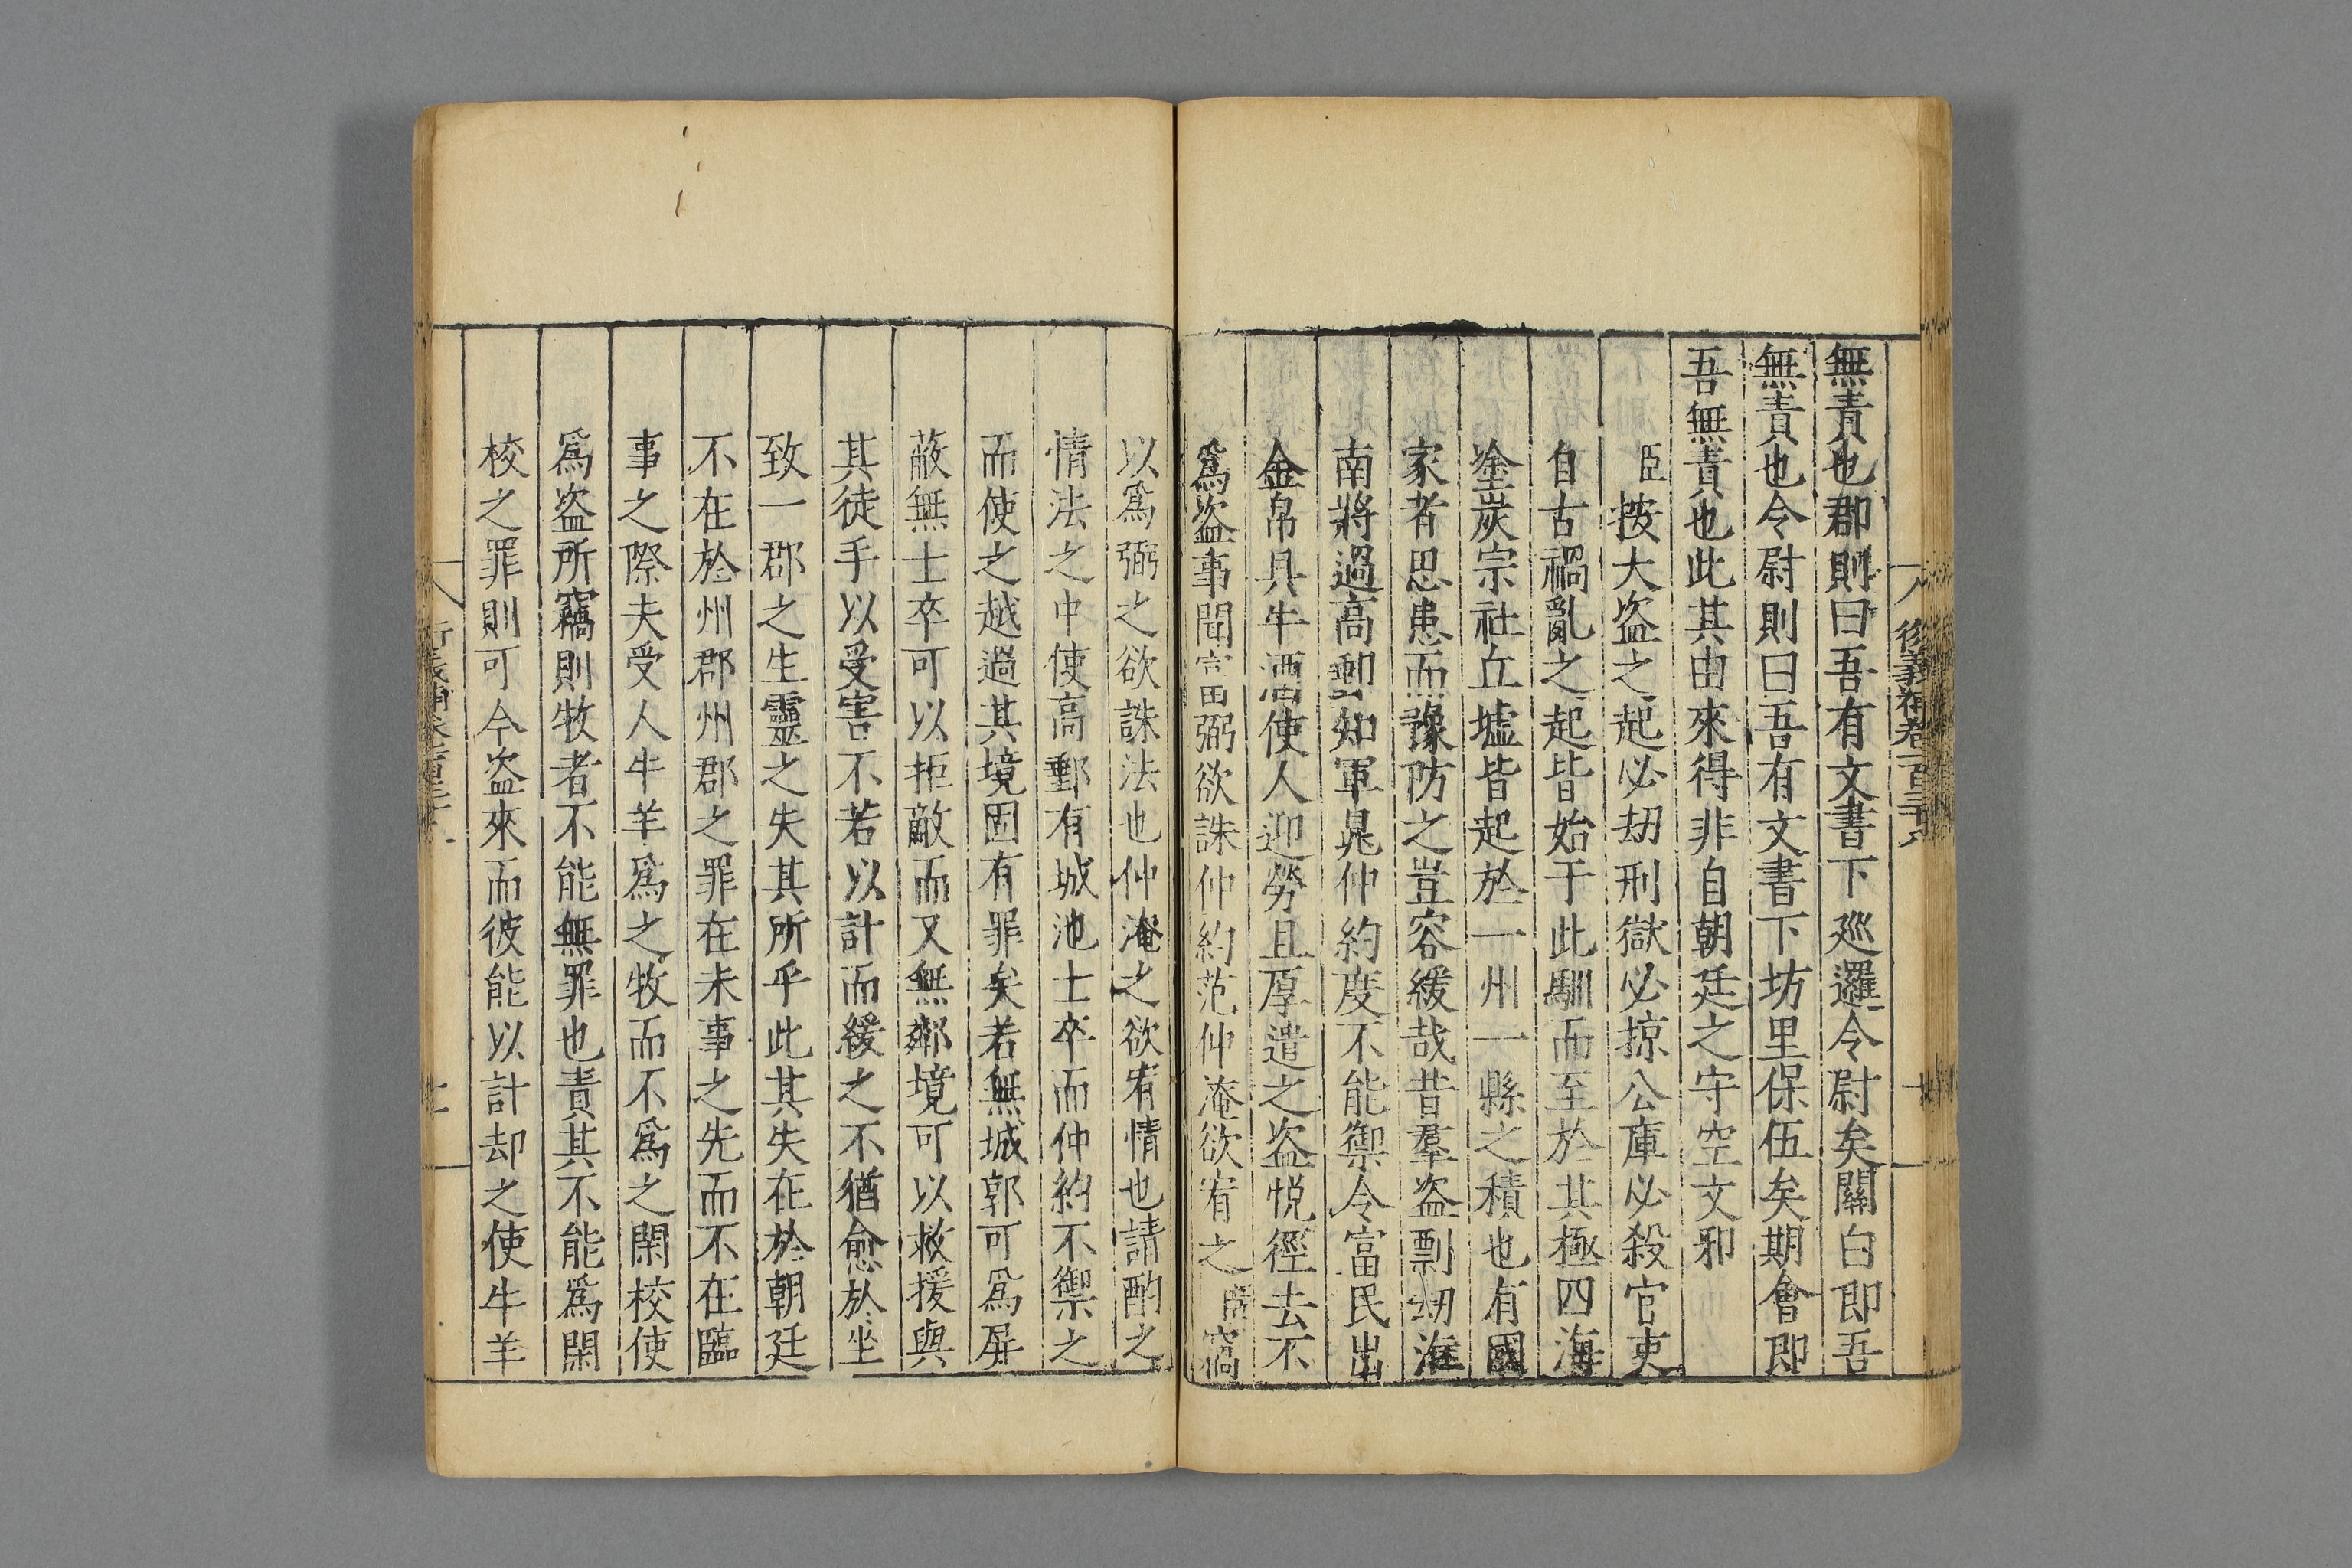 無責也郡則曰吾有文書下廵邏令尉矣關白即吾
無責也令尉則曰吾有文書下坊里保伍矣期會即
吾無責也此其由來得非自朝廷之守空文邪
臣按大盗之起必刧刑獄必掠公庫必殺官吏
自古禍亂之起皆始于此馴而至於其極四海
塗炭宗社丘墟皆起於一州一縣之積也有國
家者思患而豫防之豈容緩哉昔羣盗剽刧淮
南將過高郵知軍晁仲約度不能禦令富民出
金帛具牛酒使人迎勞且厚遣之盗悅徑去不
爲盗事聞富弼欲誅仲約范仲淹欲宥之臣竊
以爲弼之欲誅法也仲淹之欲宥情也請酌之
情法之中使高郵有城池士卒而仲約不禦之
而使之越過其境固有罪矣若無城郭可爲屏
蔽無士卒可以拒敵而又無鄰境可以救援與
其徒手以受害不若以計而緩之不猶愈於坐
致一郡之生靈之失其所乎此其失在於朝廷
不在於州郡州郡之罪在未事之先而不在臨
事之際夫受人牛羊爲之牧而不爲之閑校使
爲盗所竊則牧者不能無罪也責其不能爲閑
校之罪則可今盗來而彼能以計却之使牛羊